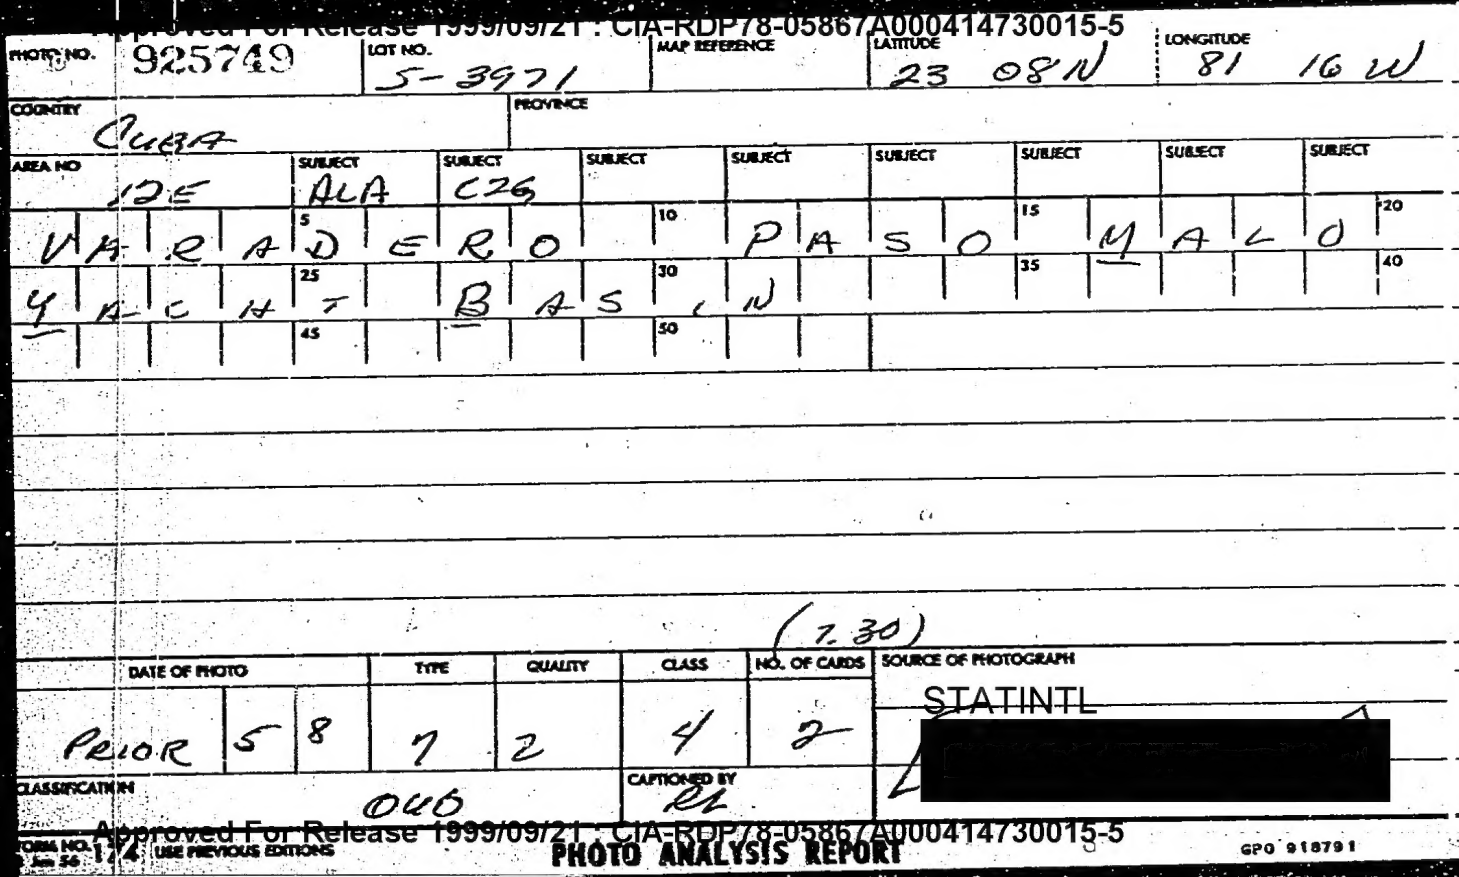 Approved For Release 1999/09/21 : CIA-RDP78-05867A000414730015-5
PHOTO NO. 925749 LOT NO. 5-3971 MAP REFERENCE LATITUDE 23 08 N LONGITUDE 81 16 W
COUNTRY CUBA PROVINCE
AREA NO 12E SUBJECT ALA SUBJECT C2G SUBJECT SUBJECT SUBJECT SUBJECT SUBJECT SUBJECT
5 10 15 20
VARADERO PASO MALO
25 30 35 40
YACHT BASIN
45 50
(7.30)
DATE OF PHOTO TYPE QUALITY CLASS NO. OF CARDS SOURCE OF PHOTOGRAPH
STATINTL
PRIOR 5 8 7 2 4 2
CLASSIFICATION OUO CAPTIONED BY RL
Approved For Release 1999/09/21 : CIA-RDP78-05867A000414730015-5
FORM NO. 174 USE PREVIOUS EDITIONS PHOTO ANALYSIS REPORT GPO 918791
Jan 56